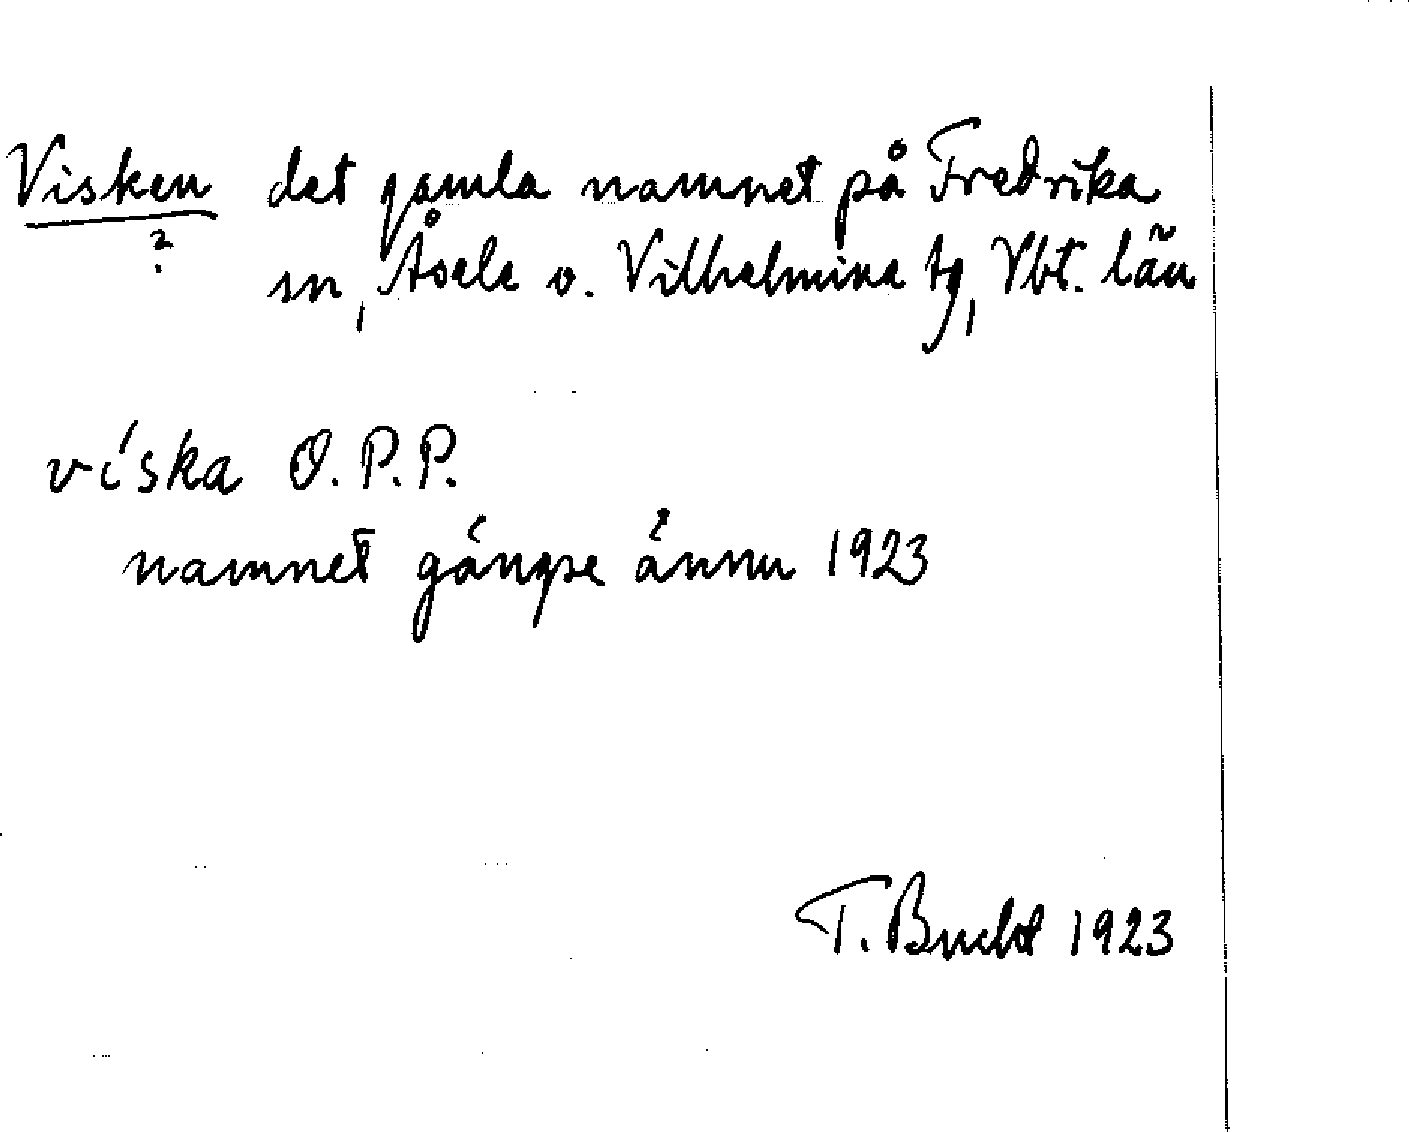 Visken det gamla namnet på Fredrika
?
sn, Åsele o. Vilhelmina tg, Vbt. län
víska O.P.P.
namnet gängse ännu 1923
T. Bucht 1923